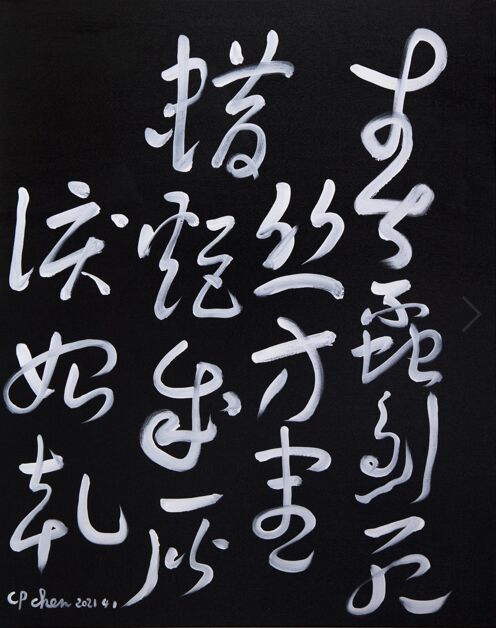 春蚕到死
丝方盡
蜡炬成灰
淚始乾
CP chen 2021 4.1